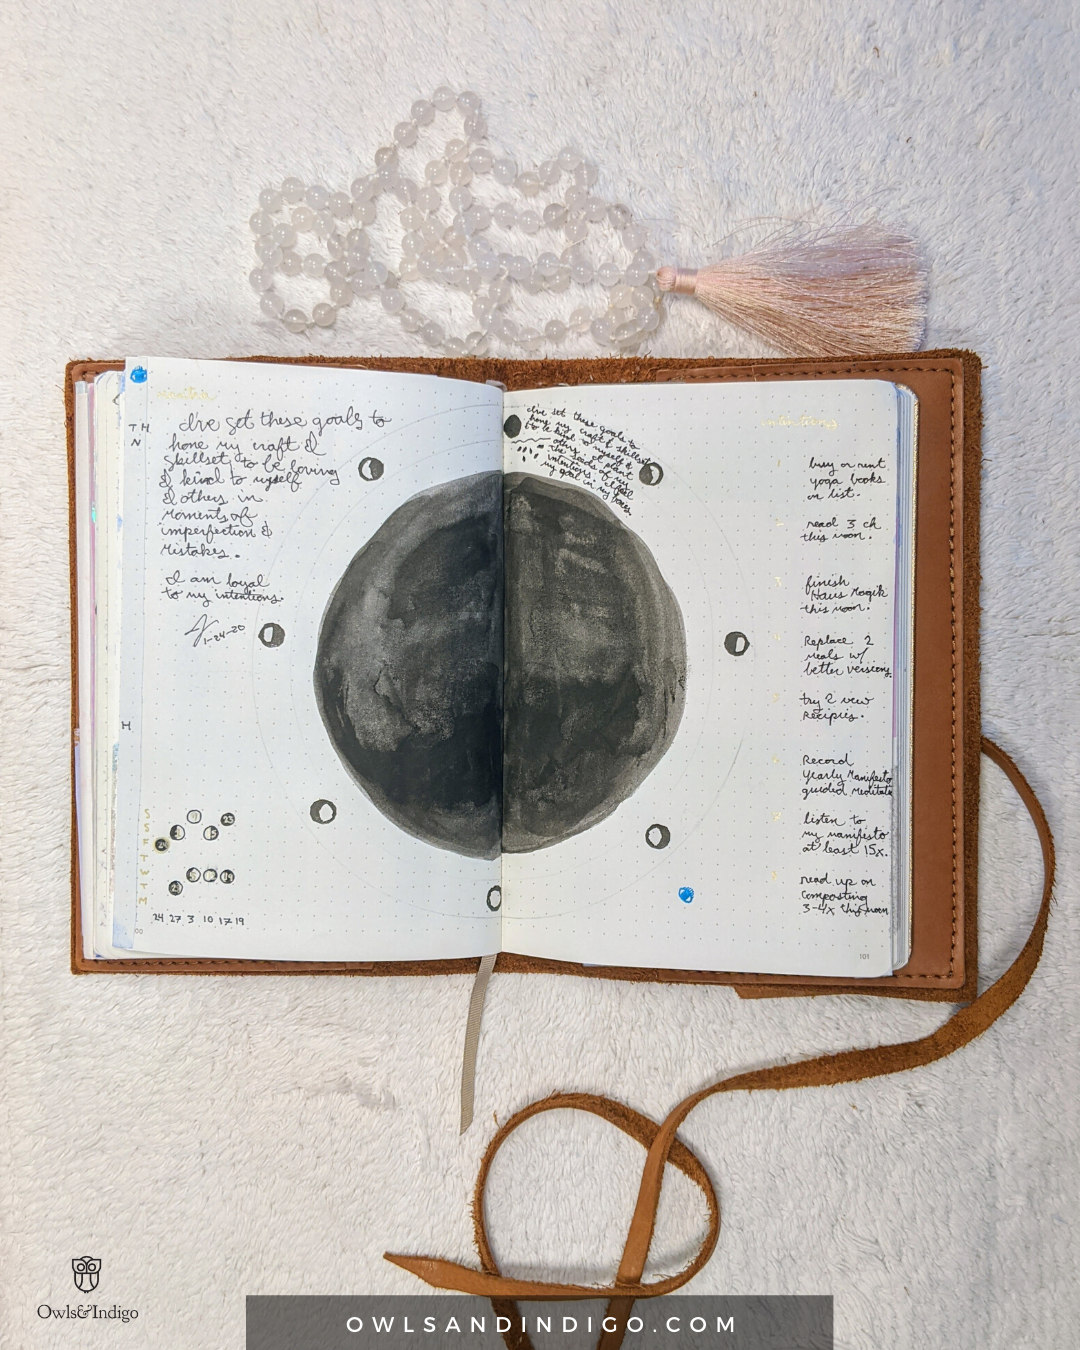 mantra
I've set these goals to
hone my craft &
skillset, to be loving
& kind to myself
& others in
moments of
imperfection &
mistakes.
I am loyal
to my intentions.
1-24-20
TH
N
H
S
S
F
T
W
T
M
23
15
24 27 3 10 17 19
I've set these goals to
hone my craft & skillset
to be kind to myself &
others. I plant
the seeds of my
intentions.
my goal in my
intentions
buy or rent
yoga books
on list.
read 3 ch
this moon.
3
finish
Haus Magik
this moon.
Replace 2
meals w/
better versions.
try 2 new
recipies.
Record
Yearly Manifesto
guided meditate
listen to
my manifesto
at least 15x.
read up on
composting
3-4x this moon
101
Owls&Indigo
OWLSANDINDIGO.COM